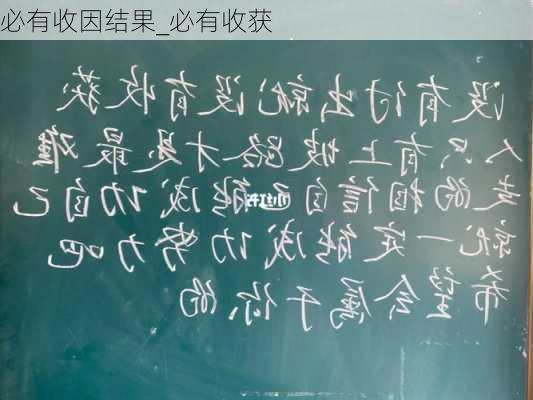 必有收因结果_必有收获
没有付出就没有收获
人只有上坡路才是最难
走的相信自己能成功自己
就一定能成功努力吧
希望会属于你的